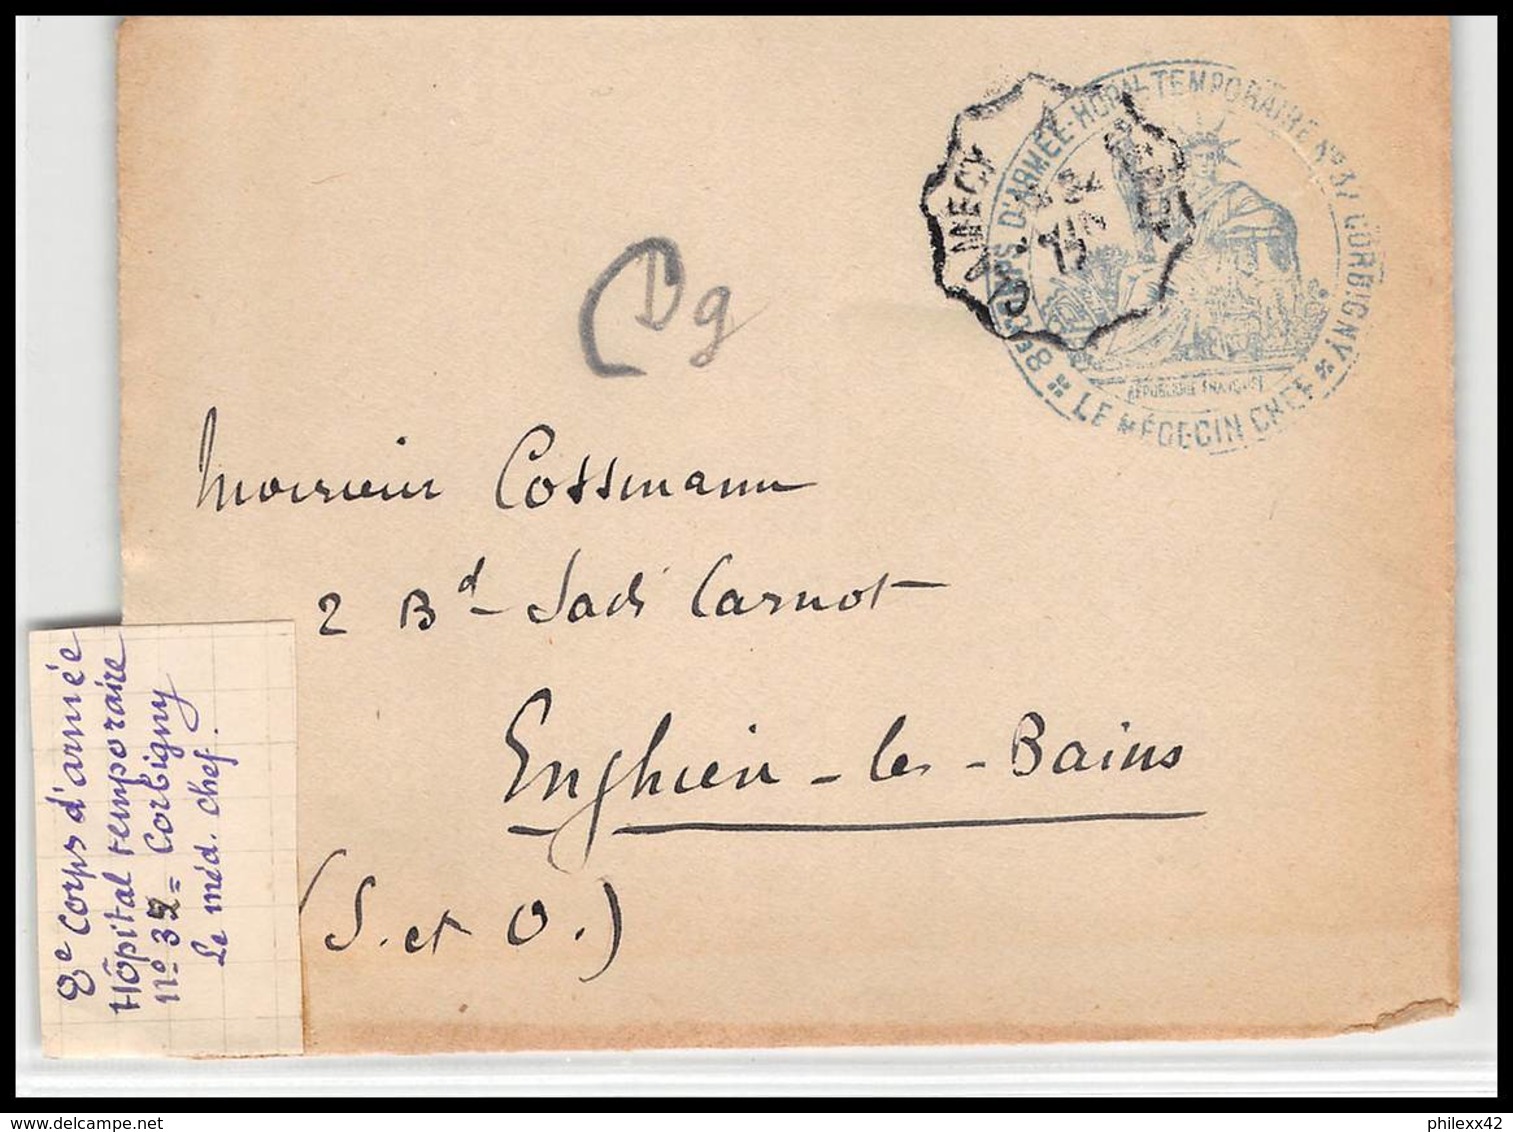 8e CORPS D'ARMÉE-HOPAL TEMPORAIRE No 37 CORBIGNY
LE MÉDECIN CHEF
RÉPUBLIQUE FRANÇAISE
JUIN
15
Dg
Monsieur Cossmann
2 Bd Sadi Carnot
Enghien-les-Bains
(S. et O.)
8e Corps d'armée
Hôpital temporaire
no 32 = Corbigny
Le méd. chef.
philexx42